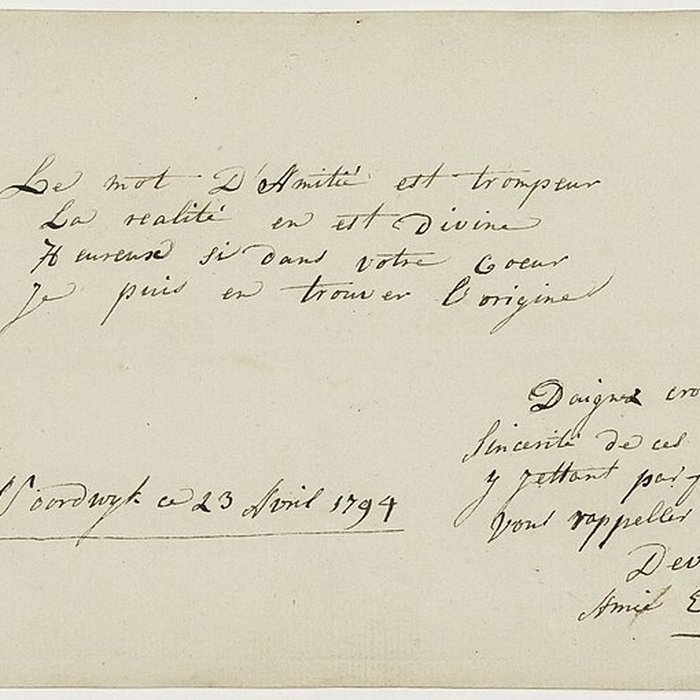 Le mot D'Amitié est trompeur
La realité en est Divine
Heureux si dans votre Coeur
Je puis en trouver l'origine
Daignez cro
Sincerité de ces
y jettant par f
Noordwyk ce 23 Avril 1794
Vous rappeller
Dev
Amie E